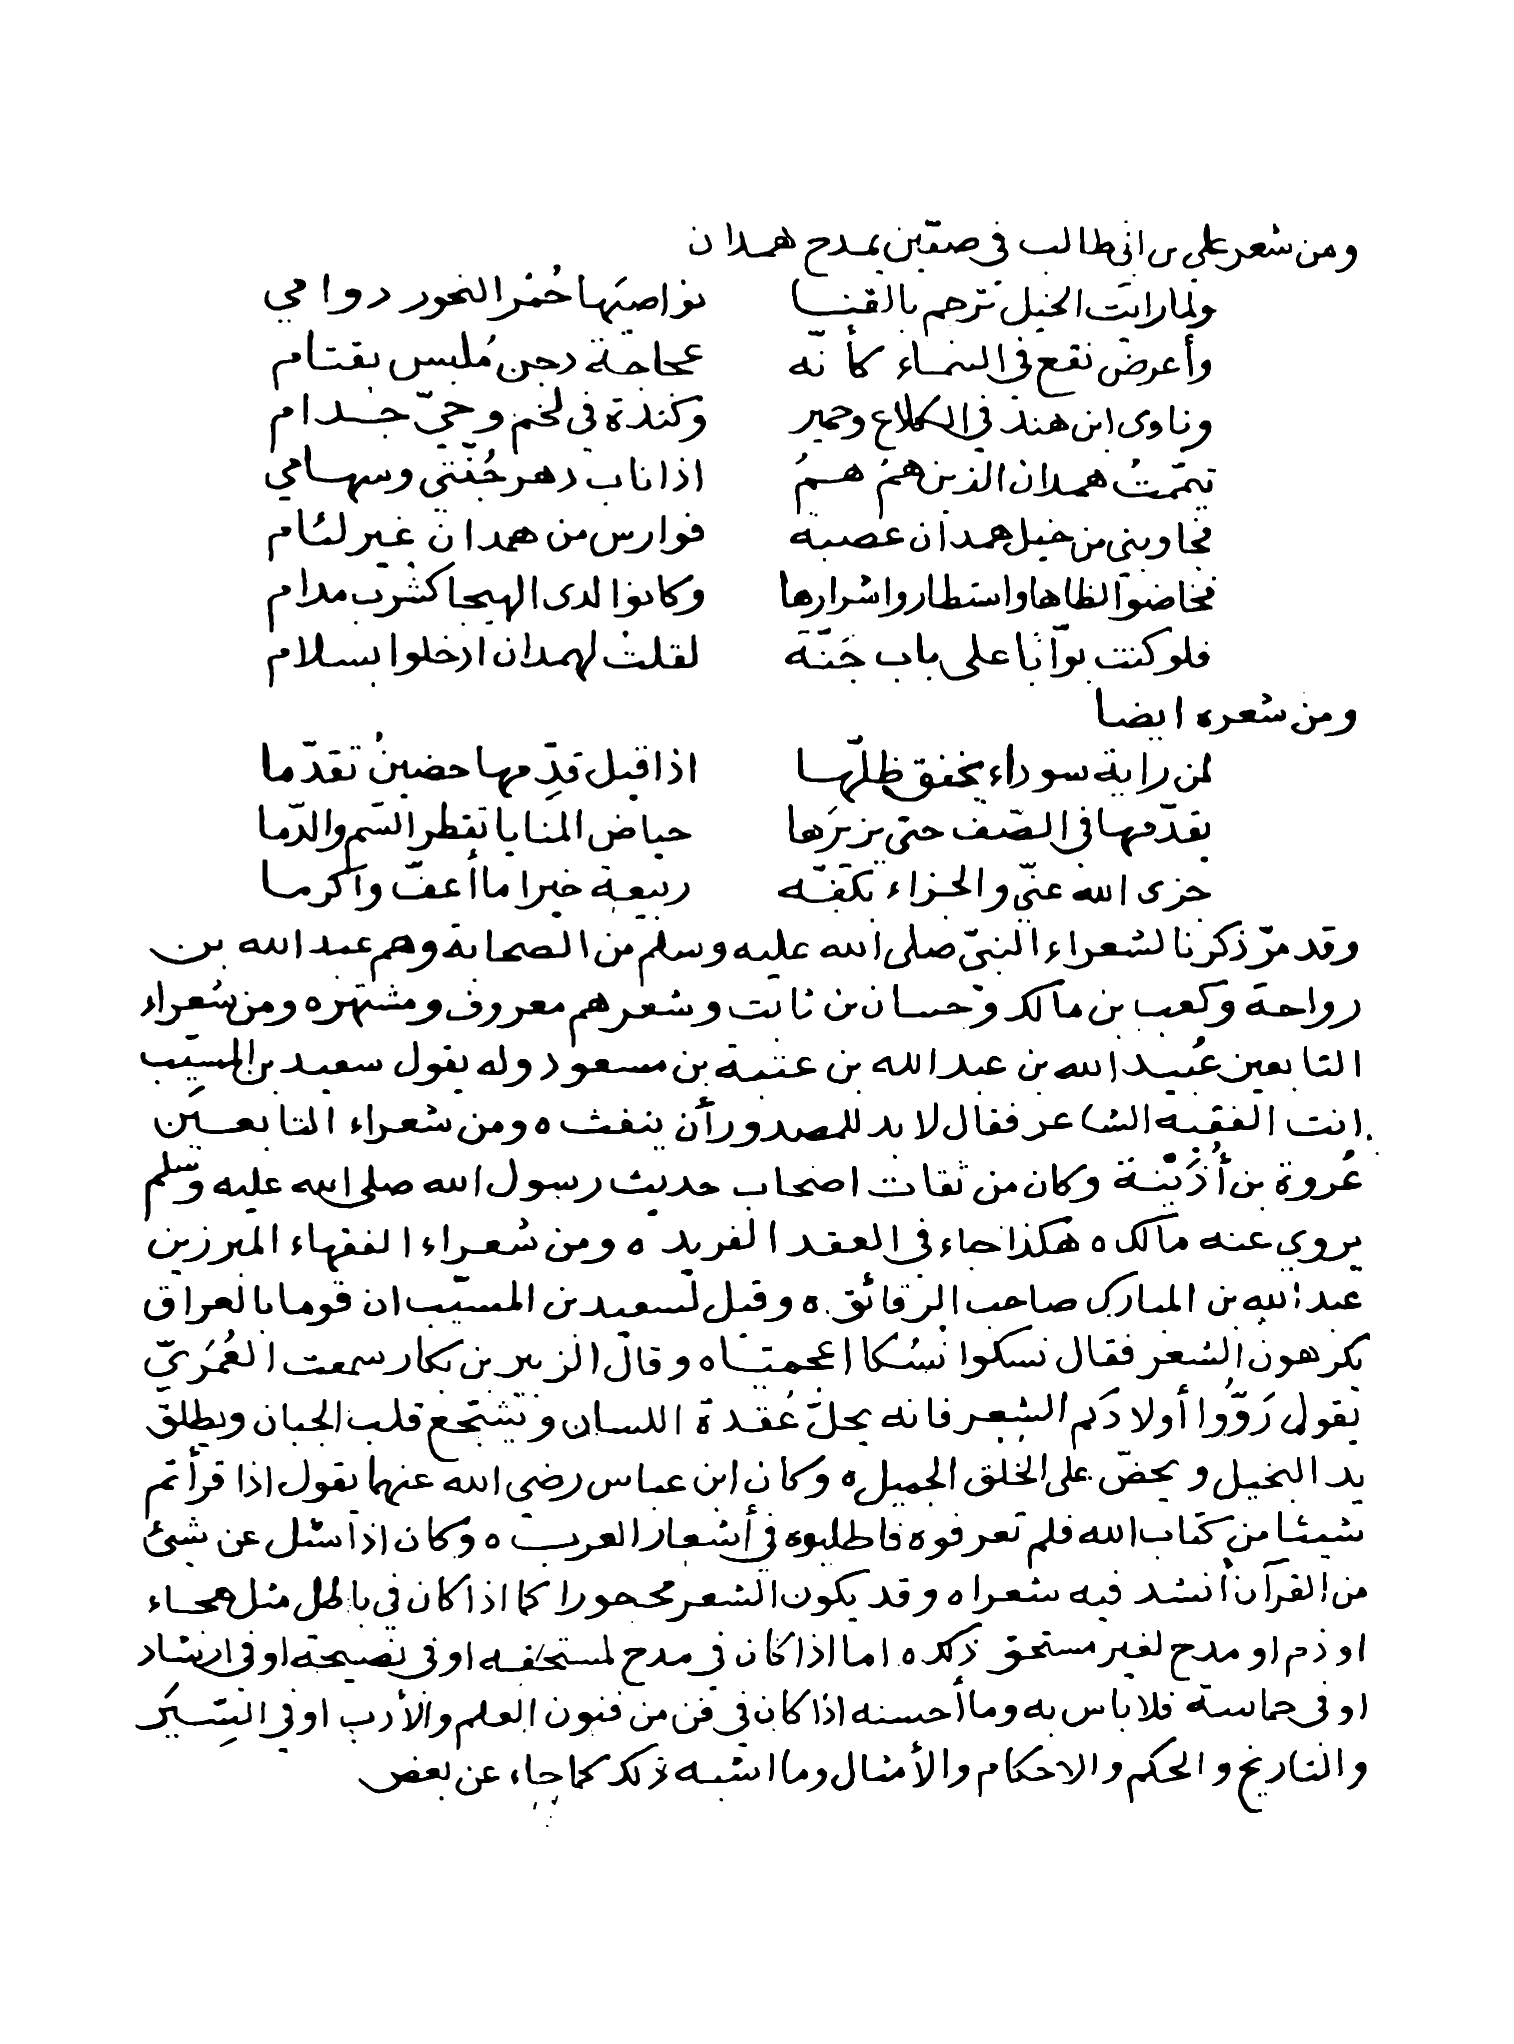 ومن شعر علي بن ابي طالب في صفّين يمدح همدان
ولما رايت الخيل تُرجم بالقنا نواصيَها حُمْرُ النحور دوامي
وأعرض نقع في السماء كأنّه عجاجة دجن مُلبس بقتام
ونادى ابن هند في الكلاع وحمير وكندة في لخم وحيّ جذام
تيمّمتُ همدان الذين همُ همُ اذا ناب دهر جُنّتي وسهامي
فجاوبني من خيل همدان عصبة فوارس من همدان غير لئام
فخاضوا لظاها واستطاروا شرارها وكانوا لدى الهيجا كشَرب مدام
فلو كنت بوّابا على باب جَنّة لقلت لهمدان ادخلوا بسلام
ومن شعره ايضا
لمن راية سوداء يخفق ظلّها اذا قيل قدِّمها حضينُ تقدّما
يقدّمها في الصّف حتى يزيرَها حياض المنايا تقطر السّم والدّما
جزى الله عنّي والجزاء بكفّه ربيعة خيرا ما أعفّ وأكرما
وقد مرّ ذكرنا لشعراء النبيّ صلى الله عليه وسلم من الصحابة وهم عبد الله بن
رواحة وكعب بن مالك وحسان بن ثابت وشعرهم معروف ومشتهر ه ومن شعراء
التابعين عُبيد الله بن عبد الله بن عتبة بن مسعود وله يقول سعيد بن المسيّب
انت الفقيه الشاعر فقال لا بد للمصدور أن ينفث ه ومن شعراء التابعين
عُروة بن أُذَيْنة وكان من ثقات اصحاب حديث رسول الله صلى الله عليه وسلم
يروي عنه مالك ه هكذا جاء في العقد الفريد ه ومن شعراء الفقهاء المبرزين
عبد الله بن المبارك صاحب الرقائق ه وقيل لسعيد بن المسيّب ان قوما بالعراق
يكرهون الشعر فقال نسكوا نُسُكا اعجميتا ه وقال الزبير بن بكار سمعت العُمَريّ
يقول رَوّوا أولادكم الشعر فانه يحلّ عُقدة اللسان ويُشجّع قلب الجبان ويطلق
يد البخيل ويحضّ على الخلق الجميل ه وكان ابن عباس رضي الله عنهما يقول اذا قرأتم
شيئا من كتاب الله فلم تعرفوه فاطلبوه في أشعار العرب ه وكان اذا سئل عن شيئ
من القرآن أنشد فيه شعرا ه وقد يكون الشعر محجورا كما اذا كان في باطل مثل هجاء
او ذم او مدح لغير مستحق ذلك ه اما اذا كان في مدح لمستحقه او في نصيحة او في ارشاد
او في حماسة فلا باس به وما أحسنه اذا كان في فن من فنون العلم والأدب او في السِّيَر
والتاريخ والحكم والاحكام والأمثال وما اشبه ذلك كما جاء عن بعض